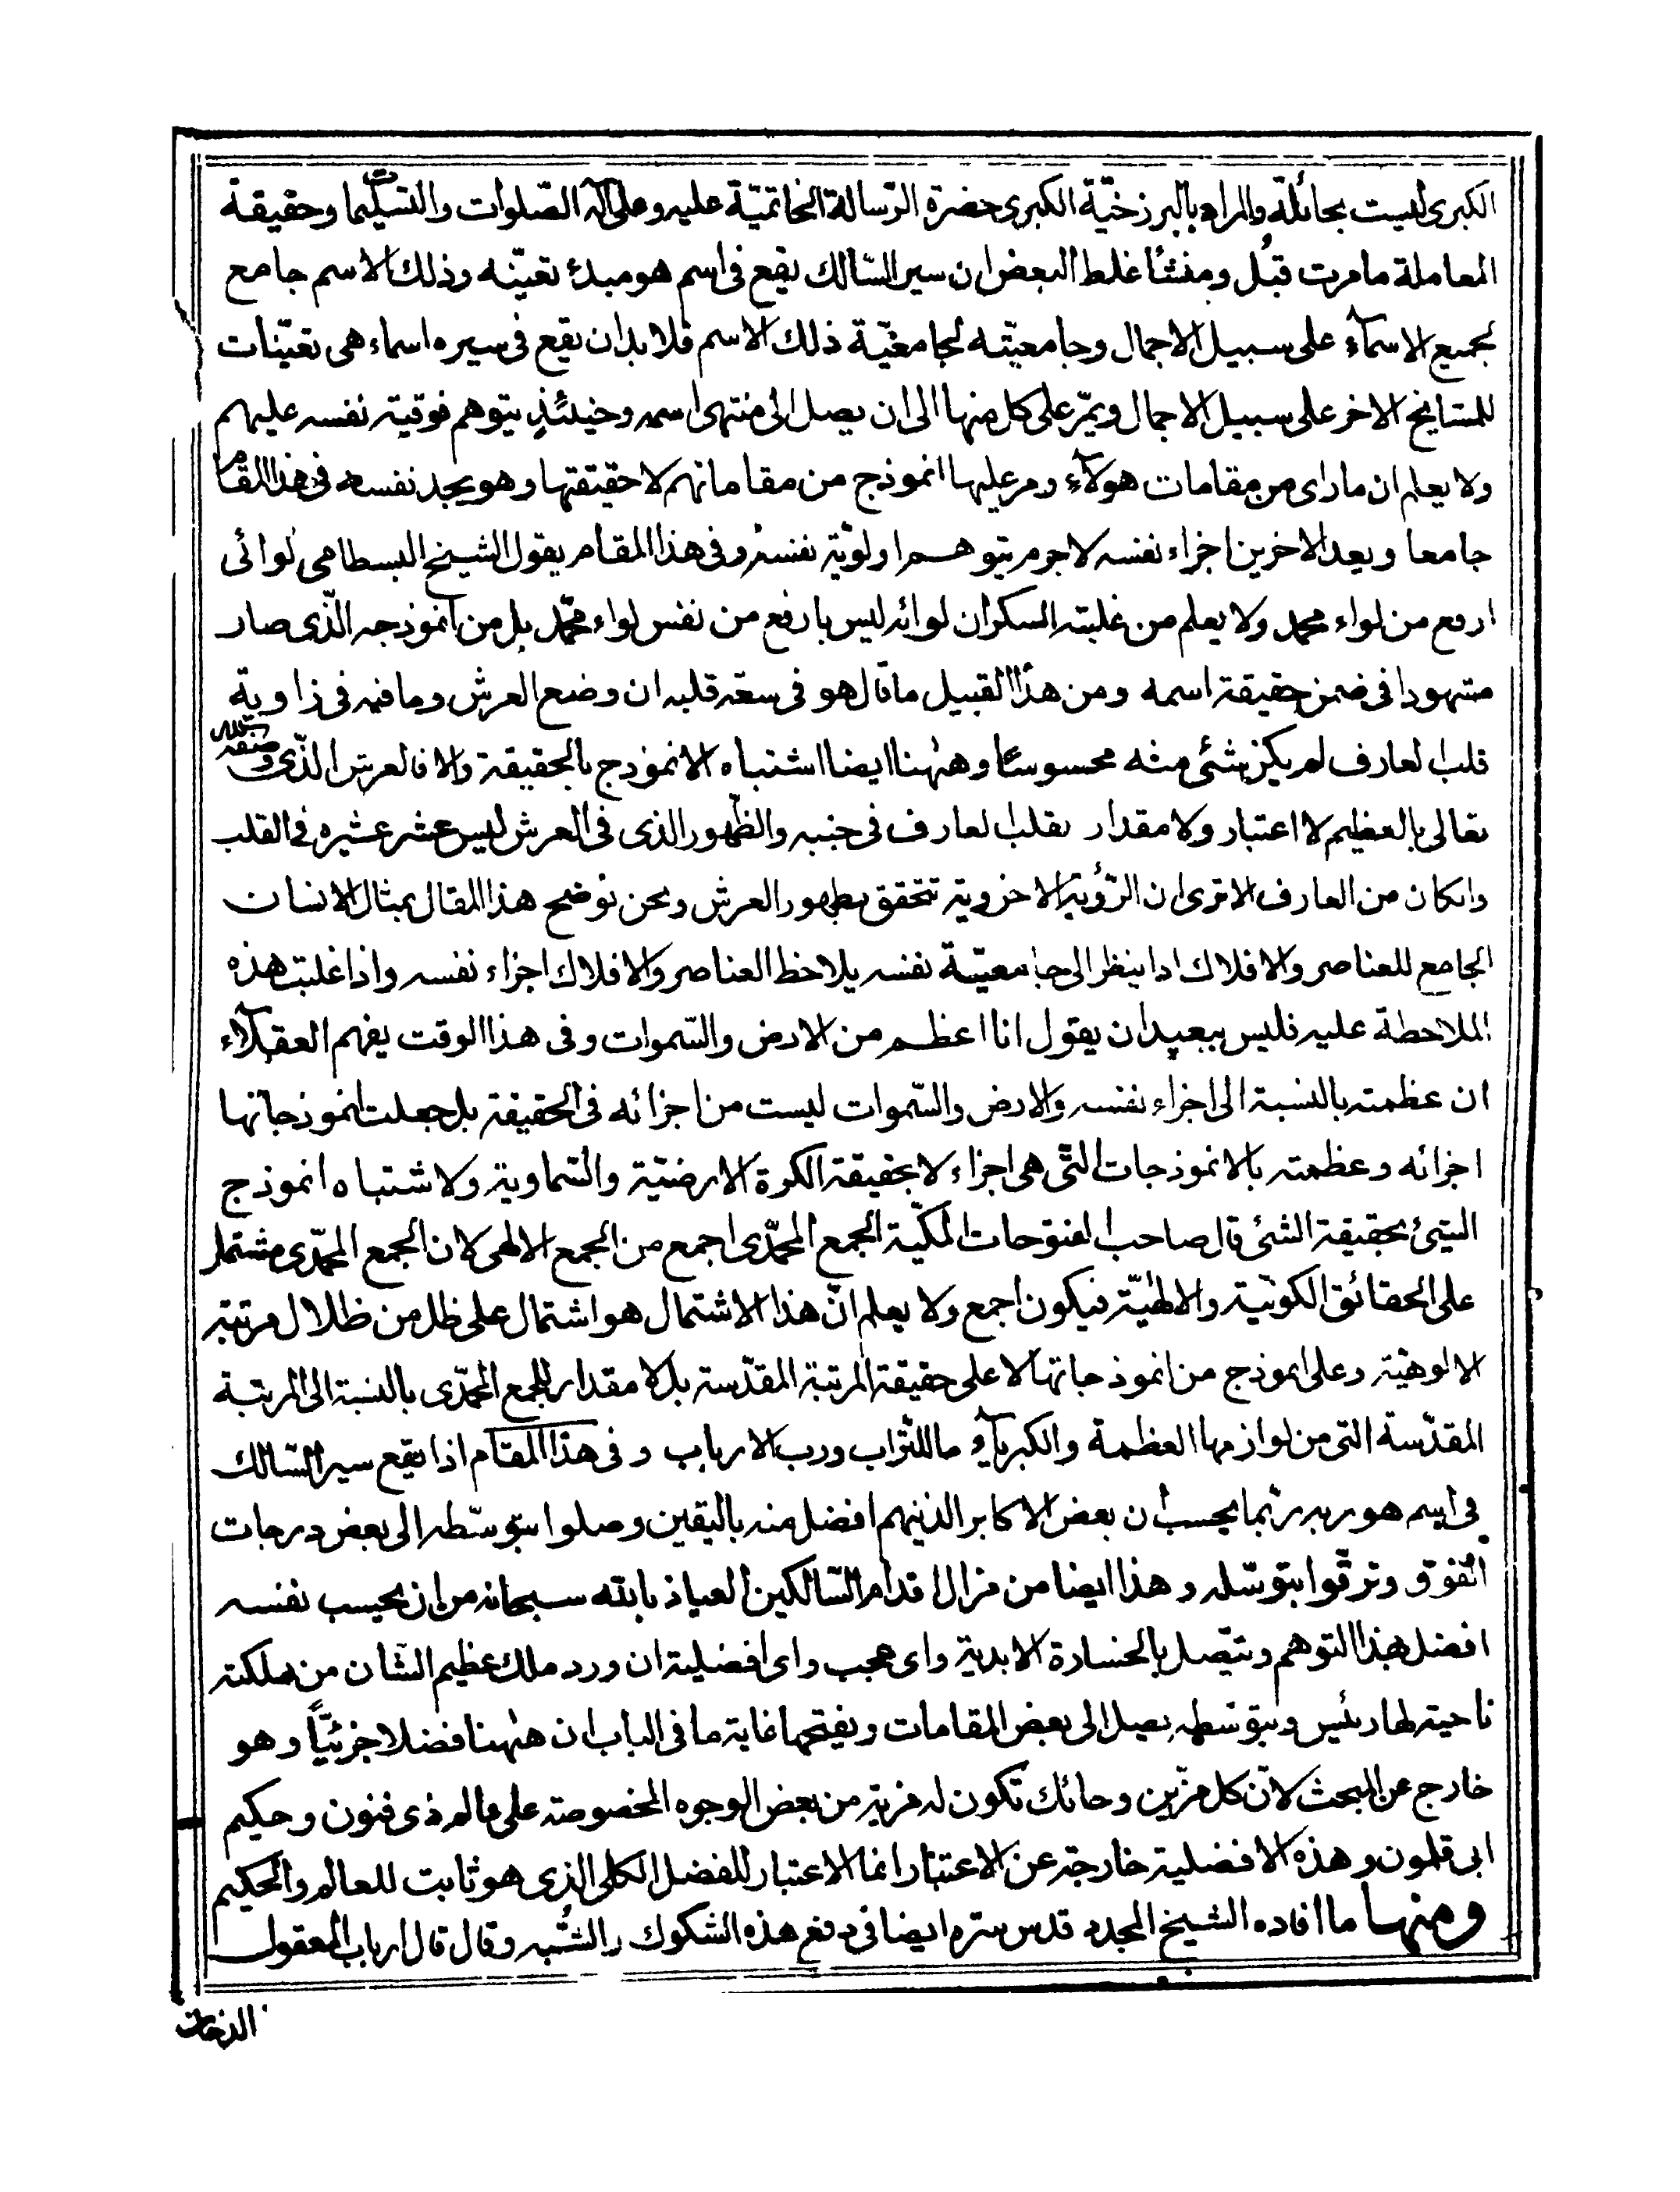 الكبرى ليست بحائلة والمراد بالبرزخيّة الكبرى حضرة الرّسالة الخاتميّة عليه وعلى آله الصّلوات والتسليمات وحقيقة
المعاملة ما مرت قبل ومنشأ غلط البعض ان سير السّالك يقع فى اسم هو مبدء تعيّنه وذلك الاسم جامع
لجميع الاسمآء على سبيل الاجمال وجامعيّته لجامعيّة ذلك الاسم فلا بد ان يقع فى سيره اسماء هى تعيّنات
للمشايخ الاخر على سبيل الاجمال ويمرّ على كل منها الى ان يصل الى منتهى اسمه وحينئذٍ يتوهم فوقية نفسه عليهم
ولا يعلم ان ما راى من مقامات هولآء ومر عليها انموذج من مقاماتهم لا حقيقتها وهو يجد نفسه فى هذا المقام
جامعا ويعد الاخرين اجزاء نفسه لاجرم يتوهم اولويّة نفسه وفى هذا المقام يقول الشيخ البسطامى لوائى
ارفع من لواء محمد ولا يعلم من غلبته السكر ان لوائه ليس بارفع من نفس لواء محمّد بل من انموذجه الّذى صار
مشهودا فى ضمن حقيقة اسمه ومن هذا القبيل ما قال هو فى سعّة قلبه ان وضع العرش وما فيه فى زاوية
قلب العارف لم يكن شئى منه محسوسًا وههنا ايضا اشتباه الانموذج بالحقيقة والا فالعرش الّذى وصفه الله
تعالى بالعظيم لا اعتبار ولا مقدار لقلب العارف فى جنبه والظّهور الذى فى العرش ليس عشر عشيره فى القلب
وانكان من العارف الا ترى ان الرّؤية الاخروية تتحقق بظهور العرش ونحن نوضح هذا المقال بمثال الانسان
الجامع للعناصر والافلاك اذا ينظر الى جامعيّة نفسه يلاحظ العناصر والافلاك اجزاء نفسه واذا غلبت هذه
الملاحظة عليه فليس ببعيد ان يقول انا اعظم من الارض والسّموات وفى هذا الوقت يفهم العقلآء
ان عظمته بالنسبة الى اجزاء نفسه والارض والسّموات ليست من اجزائه فى الحقيقة بل جعلت انموذجاتها
اجزائه وعظمته بالانموذجات التّى هى اجزاء لا بحقيقة الكرة الارضيّة والسّماوية ولاشتباه انموذج
الشئ بحقيقة الشئى قال صاحب الفتوحات المكّية الجمع المحمّدى اجمع من الجمع الالهى لان الجمع المحمّدى مشتمل
على الحقائق الكونيّة والالهٰيّة فيكون اجمع ولا يعلم انّ هذا الاشتمال هو اشتمال على ظل من ظلال مرتبة
الالوهيّة وعلى انموذج من انموذجاتها لا على حقيقة المرتبة المقدّسة بل لا مقدار للجمع المحمّدى بالنسبة الى المرتبة
المقدّسة التى من لوازمها العظمة والكبريآء ما للتّراب ورب الارباب وفى هذا المقام اذا يقع سير السّالك
فى اسم هو ربه ربّما يحسب ان بعض الاكابر الذينهم افضل منه باليقين وصلوا بتوسّطه الى بعض درجات
الفوق وترقّوا بتوسّله وهذا ايضا من مزال اقدام السّالكين العياذ بالله سبحانه من ان يحسب نفسه
افضل بهذا التوهم ويتّصل بالخسارة الابدية واى عجب واى افضلية ان ورد ملك عظيم الشّان من مملكته
ناحية لها رئيس وبتوسّطه يصل الى بعض المقامات ويفتحها غاية ما فى الباب ان ههٰنا فضلا جزئيّاً وهو
خارج عن المبحث لانّ كل مزّين وحائك تكون له مزية من بعض الوجوه المخصوصة على عالم ذى فنون وحكيم
ابى قلمون وهذه الافضلية خارجة عن الاعتبار انما الاعتبار للفضل الكلى الذى هو ثابت للعالم والحكيم
ومنها ما افاده الشيخ المجدد قدس سّره ايضا فى دفع هذه الشكوك والشّبه وقال قال ارباب المعقول